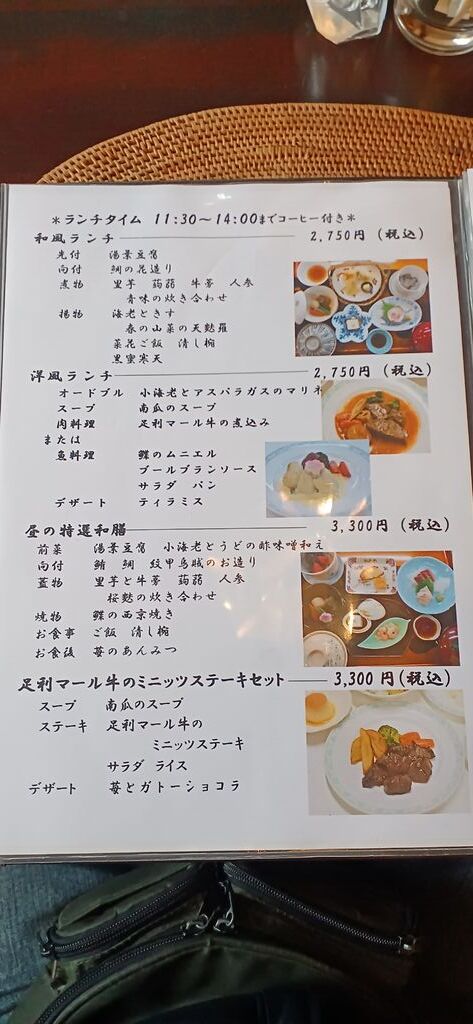 ＊ランチタイム 11:30～14:00までコーヒー付き＊
和風ランチ 2,750円（税込）
先付 湯葉豆腐
向付 鯛の花造り
煮物 里芋 蒟蒻 牛蒡 人参
青味の炊き合わせ
揚物 海老ときす
春の山菜の天麩羅
菜花ご飯 清し椀
黒蜜寒天
洋風ランチ 2,750円（税込）
オードブル 小海老とアスパラガスのマリネ
スープ 南瓜のスープ
肉料理 足利マール牛の煮込み
または
魚料理 鰈のムニエル
ブールブランソース
サラダ パン
デザート ティラミス
昼の特選和膳 3,300円（税込）
前菜 湯葉豆腐 小海老とうどの酢味噌和え
向付 鮪 鯛 紋甲烏賊のお造り
蓋物 里芋と牛蒡 蒟蒻 人参
桜麩の炊き合わせ
焼物 鰈の西京焼き
お食事 ご飯 清し椀
お食後 苺のあんみつ
足利マール牛のミニッツステーキセット 3,300円（税込）
スープ 南瓜のスープ
ステーキ 足利マール牛の
ミニッツステーキ
サラダ ライス
デザート 苺とガトーショコラ